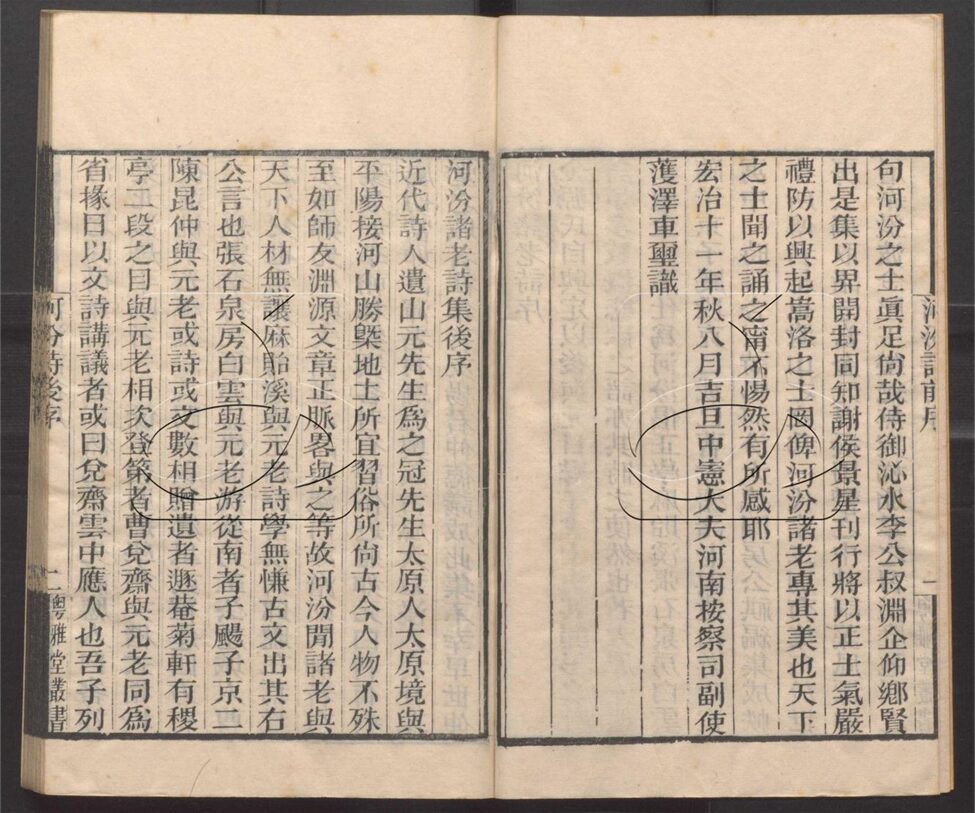 句河汾之士眞足尙哉侍御沁水李公叔淵企仰鄉賢
出是集以畀開封同知謝侯景星刊行將以正士氣嚴
禮防以興起嵩洛之士罔俾河汾諸老專其美也天下
之士聞之誦之甯不惕然有所感耶
宏治十一年秋八月吉旦中憲大夫河南按察司副使
蒦澤車璽識
河汾諸老詩集後序
近代詩人遺山元先生爲之冠先生太原人太原境與
平陽接河山勝槩地土所宜習俗所尙古今人物不殊
至如師友淵源文章正脈畧與之等故河汾閒諸老與
天下人材無讓麻貽溪與元老詩學無慊古文出其右
公言也張石泉房白雲與元老游從南者子颺子京二
陳昆仲與元老或詩或文數相贈遺者遯菴菊軒有稷
亭二段之目與元老相次登第者曹兌齋與元老同爲
省掾日以文詩講議者或曰兌齋雲中應人也吾子列
河汾詩後序
二
粤雅堂叢書